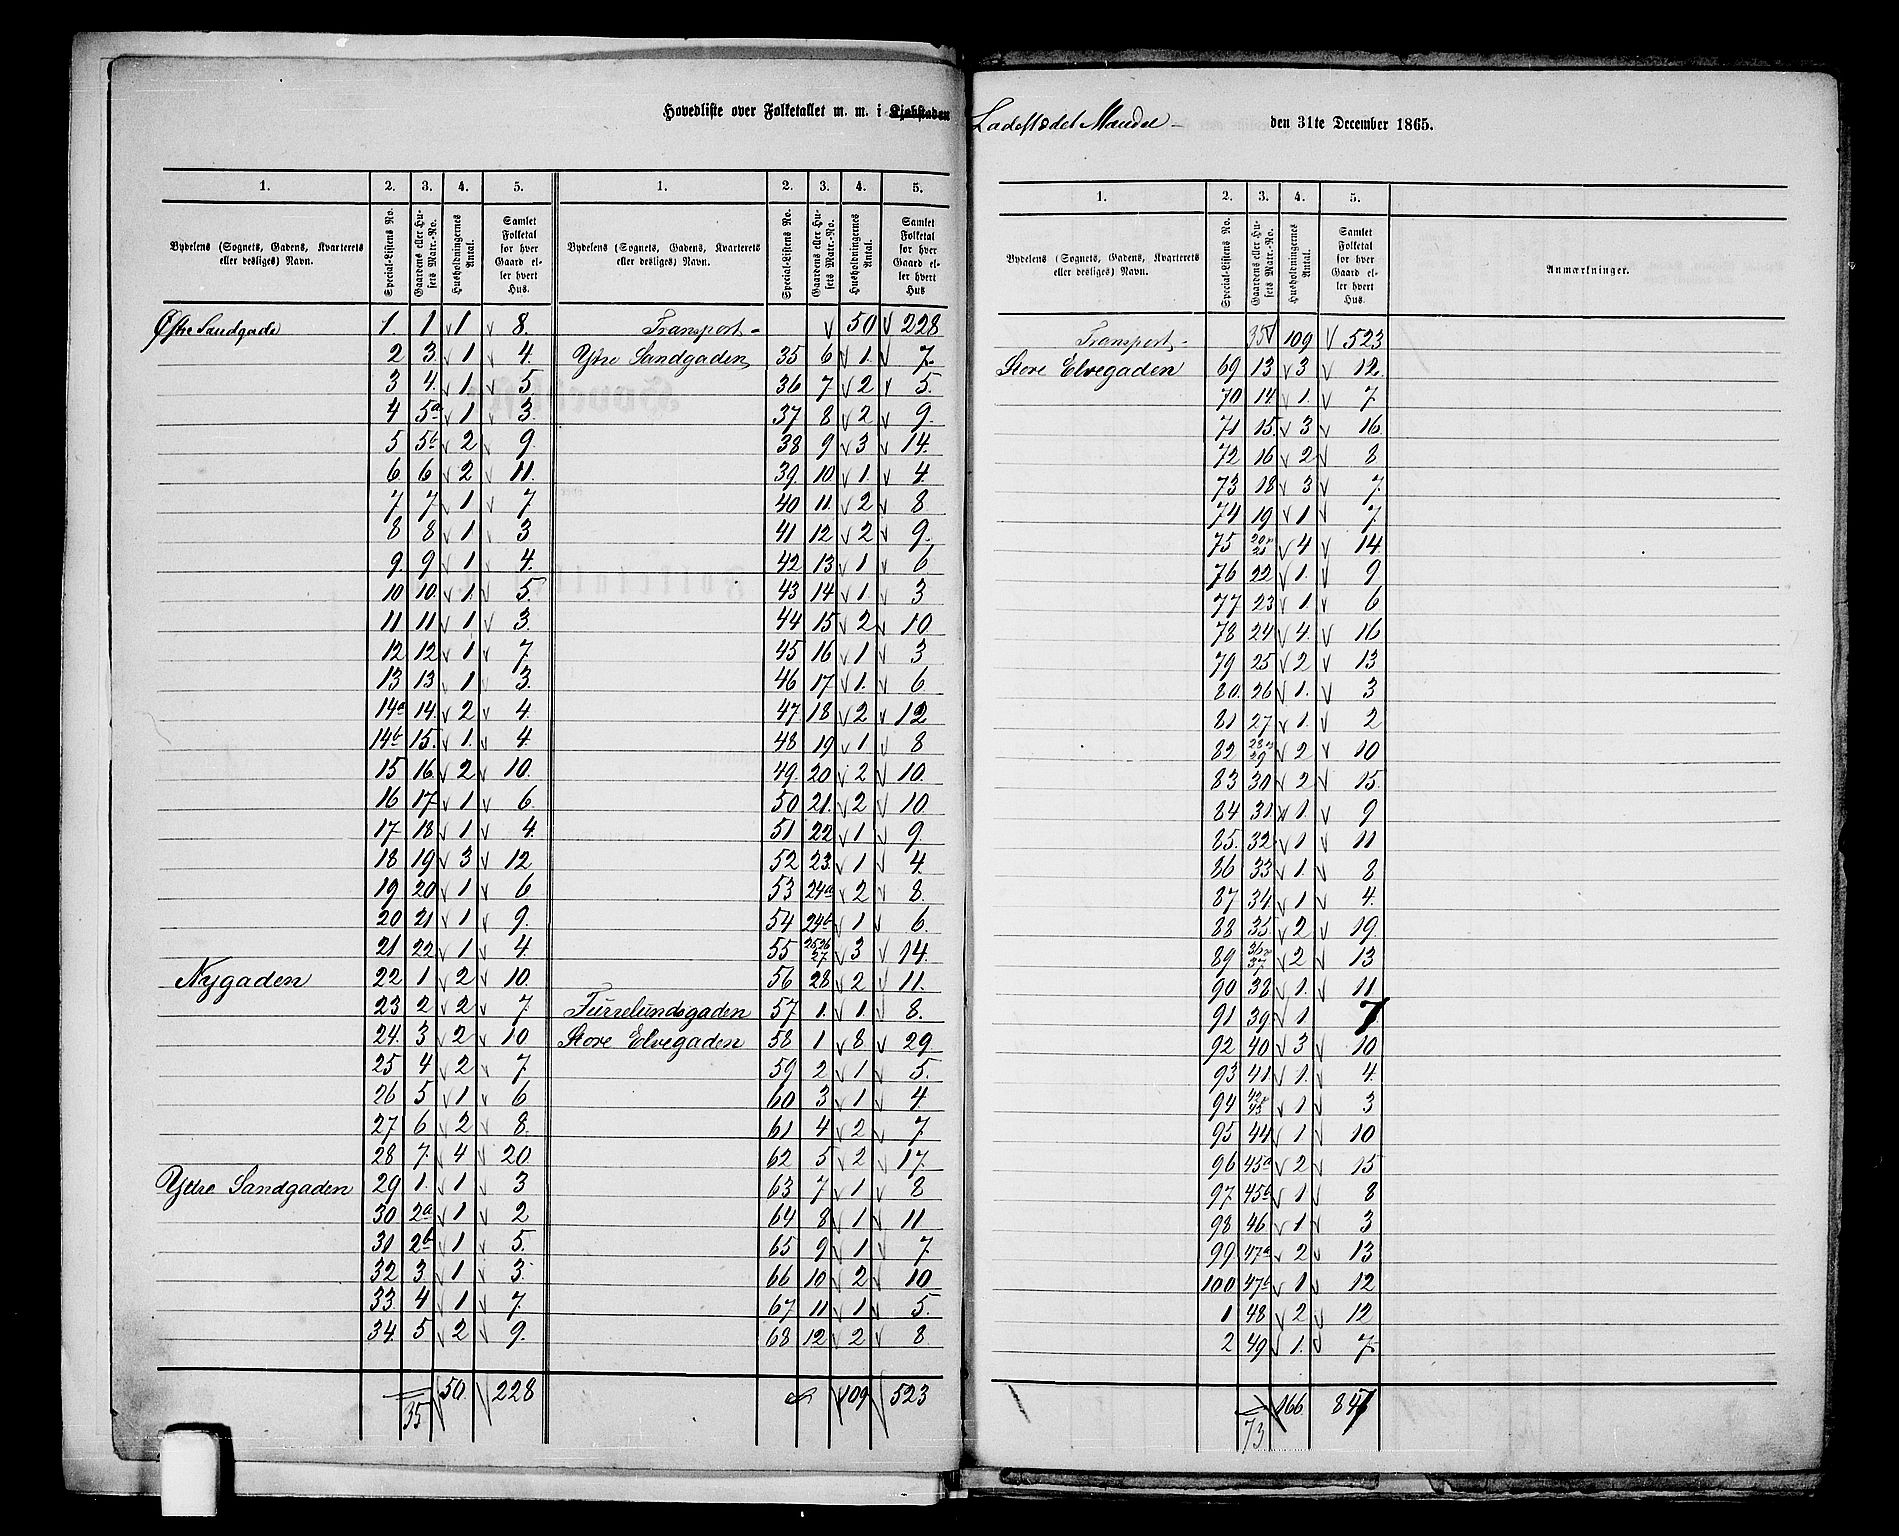 Hovedliste over Folketallet m. m. i Kjøbstaden Ladestedet Mandal - den 31te December 1865.
1. 2. 3. 4. 5. 1. 2. 3. 4. 5.
Bydelens (Sognets, Gadens, Kvarterets eller desliges) Navn. Special-Listens No. Gaardens eller Husets Matr.-No. Husholdningernes Antal. Samlet Folketal for hver Gaard eller hvert Hus. Bydelens (Sognets, Gadens, Kvarterets eller desliges) Navn. Special-Listens No. Gaardens eller Husets Matr.-No. Husholdningernes Antal. Samlet Folketal for hver Gaard eller hvert Hus
Østre Sandgade 1. 1 √ 1 √ 8. Transport - √ 50 √ 228
2 3. √ 1 √ 4. Ydre Sandgaden 35 6 √ 1. √ 7.
3 4. √ 1 √ 5 36 7 √ 2 √ 5.
4 5a √ 1 √ 3. 37 8 √ 2 √ 9.
5 5b √ 2 √ 9. 38 9 √ 3 √ 14.
6 6 √ 2 √ 11. 39 10 √ 1. √ 4.
7 7 √ 1 √ 7 40 11. √ 2 √ 8
8 8 √ 1 √ 3 41 12 √ 2 √ 9.
9. 9 √ 1 √ 4. 42 13 √ 1 √ 6
10 10. √ 1. √ 5. 43 14 √ 1. √ 3
11 11 √ 1 √ 3. 44 15 √ 2 √ 10
12 12 √ 1 √ 7. 45 16 √ 1 √ 3
13 13. √ 1 √ 3. 46 17 √ 1. √ 6
14a 14. √ 2 √ 4. 47 18 √ 2 √ 12
14b 15. √ 1. √ 4. 48 19 √ 1 √ 8
15 16. √ 2 √ 10. 49 20 √ 2 √ 10.
16 17. √ 1 √ 6. 50 21. √ 2 √ 10
17. 18 √ 1 √ 4. 51 22 √ 1 √ 9.
18 19 √ 3 √ 12 52 23. √ 1 √ 4.
19 20 √ 1 √ 6 53 24a √ 2 √ 8.
20 21 √ 1 √ 9. 54 24b √ 1 √ 6.
21 22 √ 1 √ 4. 55 25 26 27 √ 3 √ 14.
Nygaden 22 1 √ 2 √ 10. 56 28 √ 2 √ 11.
23 2 √ 2 √ 7. Furrelundsgaden 57 1. √ 1. √ 8.
24. 3 √ 2 √ 10 Store Elvegaden 58 1 √ 8 √ 29.
25 4 √ 2 √ 7 59 2 √ 1 √ 5.
26 5 √ 1 √ 6 60 3 √ 1 √ 4
27 6 √ 2 √ 8. 61 4 √ 2 √ 7.
28 7. √ 4 √ 20 62 5 √ 2 √ 17.
Ydre Sandgaden 29 1. √ 1 √ 3 63 7 √ 1 √ 8
30 2a √ 1 √ 2 64 8 √ 1 √ 11
31 2b √ 1 √ 5. 65 9 √ 1 √ 7.
32 3 √ 1 √ 3. 66 10 √ 2 √ 10
33. 4 √ 1 √ 7. 67 11 √ 1 √ 5.
34. 5 √ 2 √ 9. 68 12 √ 2 √ 8
35 50. √ 228 √ 109 √ 523
1. 2. 3. 4. 5.
Bydelens (Sognets, Gadens, Kvarterets eller desliges) Navn. Special-Listens No. Gaardens eller Husets Matr.-No. Husholdningernes Antal. Samlet Folketal for hver Gaard eller hvert Hus. Anmærkninger.
Transport - 35 √ 109 √ 523
Store Elvegaden 69 13 √ 3 √ 12.
70 14. √ 1. √ 7
71 15. √ 3 √ 16.
72 16 √ 2 √ 8
73 18 √ 3 √ 7.
74 19 √ 1 √ 7.
75 20 21 √ 4 √ 14.
76 22 √ 1. √ 9
77 23 √ 1 √ 6
78 24 √ 4. √ 16
79 25 √ 2 √ 13
80. 26 √ 1. √ 3
81 27 √ 1. √ 2
82 28 29 √ 2 √ 10
83 30 √ 2 √ 15.
84 31. √ 1. √ 9
85. 32 √ 1 √ 11
86 33 √ 1. √ 8
87 34. √ 1 √ 4.
88 35. √ 2 √ 19.
89 36 37 √ 2 √ 13
90 38 √ 1. √ 11
91 39 √ 1 7
92 40 √ 3 √ 10
93 41 √ 1. √ 4.
94 42 43 √ 1 √ 3
95 44 √ 1 √ 10
96 45a √ 2 √ 15
97. 45b √ 1 √ 8
98 46 √ 1 √ 3
99. 47a √ 2 √ 13
100 47b √ 1 √ 12
1 48 √ 2 √ 12
2 49 √ 1. √ 7.
73 166